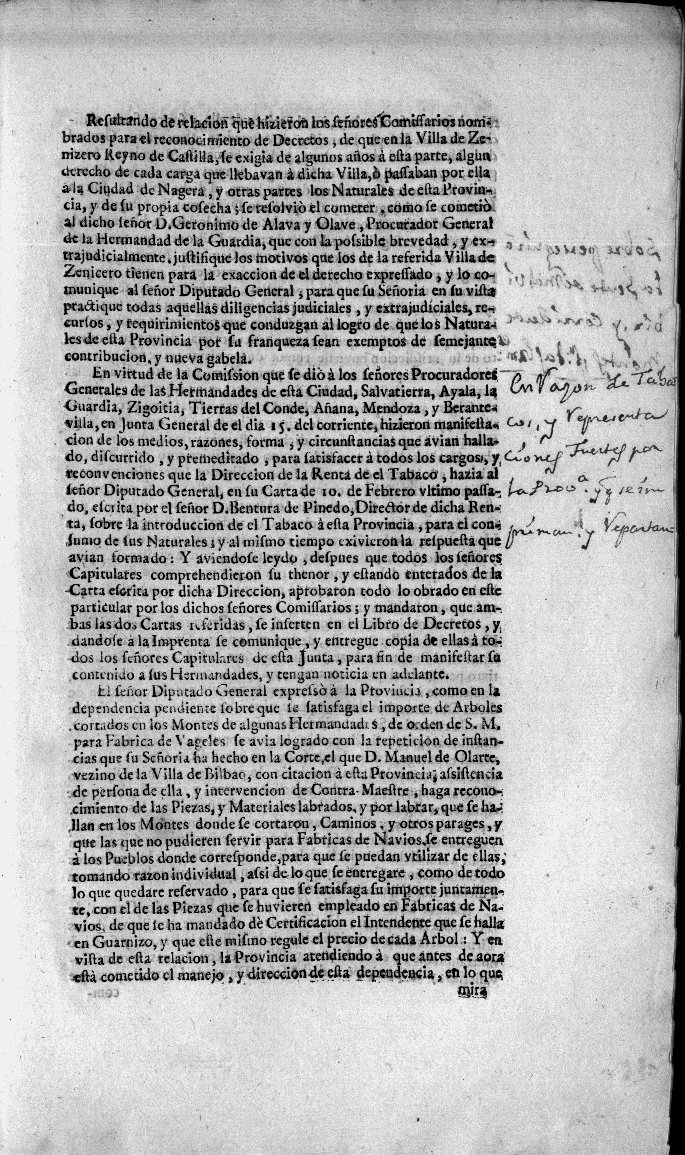 Resultando de relacion que hizieron los señores Comissarios nom-
brados para el reconocimiento de Decretos, de que en la Villa de Ze-
nizero Reyno de Castilla, se exigia de algunos años à esta parte, algun
derecho de cada carga que llebavan à dicha Villa, ò passaban por ella
à la Ciudad de Nagera, y otras partes los Naturales de esta Provin-
cia, y de su propia cosecha; se resolviò el cometer, como se cometiò
al dicho señor D. Geronimo de Alava y Olave, Procurador General
de la Hermandad de la Guardia, que con la possible brevedad, y ex-
trajudicialmente, justifique los motivos que los de la referida Villa de
Zenicero tienen para la exaccion de el derecho expressado, y lo co-
munique al señor Diputado General, para que su Señoria en su vista
practique todas aquellas diligencias judiciales, y extrajudiciales, re-
cursos, y requirimientos que conduzgan al logro de que los Natura-
les de esta Provincia por su franqueza sean exemptos de semejante
contribucion, y nueva gabela.
En virtud de la Comission que se diò à los señores Procuradores
Generales de las Hermandades de esta Ciudad, Salvatierra, Ayala, la
Guardia, Zigoitia, Tierras del Conde, Añana, Mendoza, y Berante-
villa, en Junta General de el dia 15. del corriente, hizieron manifesta-
cion de los medios, razones, forma, y circunstancias que avian halla-
do, discurrido, y premeditado, para satisfacer à todos los cargos, y
reconvenciones que la Direccion de la Renta de el Tabaco, hazia al
señor Diputado General, en su Carta de 10. de Febrero vltimo passa-
do, escrita por el señor D. Bentura de Pinedo, Director de dicha Ren-
ta, sobre la introduccion de el Tabaco à esta Provincia, para el con-
sumo de sus Naturales; y al mismo tiempo exivieron la respuesta que
avian formado: Y aviendose leydo, despues que todos los señores
Capitulares comprehendieron su thenor, y estando enterados de la
Carta escrita por dicha Direccion, aprobaron todo lo obrado en este
particular por los dichos señores Comissarios; y mandaron, que am-
bas las dos Cartas referidas, se inserten en el Libro de Decretos, y
dandose à la Imprenta se comunique, y entregue copia de ellas à to-
dos los señores Capitulares de esta Junta, para fin de manifestar su
contenido à sus Hermandades, y tengan noticia en adelante.
El señor Diputado General expressò à la Provincia, como en la
dependencia pendiente sobre que se satisfaga el importe de Arboles
cortados en los Montes de algunas Hermandades, de orden de S. M.
para Fabrica de Vageles se avia logrado con la repeticion de instan-
cias que su Señoria ha hecho en la Corte, el que D. Manuel de Olarte,
vezino de la Villa de Bilbao, con citacion à esta Provincia, assistencia
de persona de ella, y intervencion de Contra-Maestre, haga recono-
cimiento de las Piezas, y Materiales labrados, y por labrar, que se ha-
llan en los Montes donde se cortaron, Caminos, y otros parages, y
que las que no pudieren servir para Fabricas de Navios, se entreguen
à los Pueblos donde corresponde, para que se puedan vtilizar de ellas,
tomando razon individual, assi de lo que se entregare, como de todo
lo que quedare reservado, para que se satisfaga su importe juntamen-
te, con el de las Piezas que se huvieren empleado en Fabricas de Na-
vios, de que se ha mandado dè Certificacion el Intendente que se halla
en Guarnizo, y que este mismo regule el precio de cada Arbol: Y en
vista de esta relacion, la Provincia atendiendo à que antes de aora
està cometido el manejo, y direccion de esta dependencia, en lo que
mira
En Razon de Taba
cos, y Representa
ciones fuertes por
la Prov.ª y q se im
priman. y Repartan